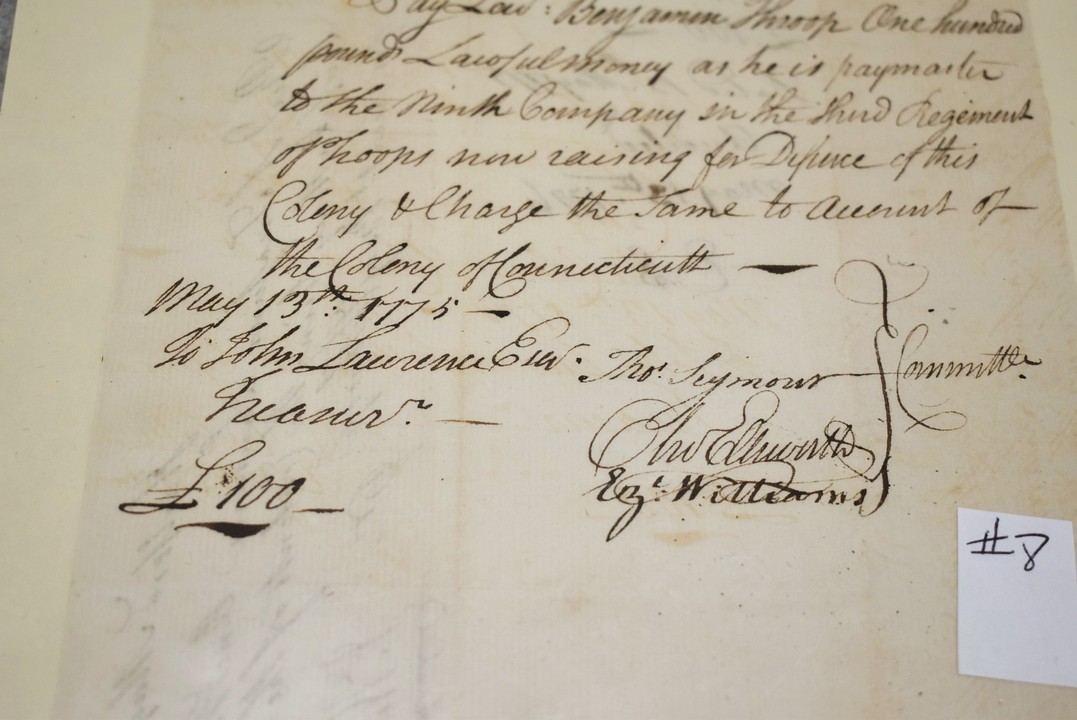 Pay Benjamin Throop One hundred
pounds Lawful money as he is paymaster
to the Ninth Company in the third Regement
of troops now raising for Defence of this
Colony & Charge the Same to Account of
the Colony of Connecticutt
May 13th: 1775
To John Lawrence Esqr. Thos. Seymour Committee
Treasurr.
Olivr Ellsworth
£100
Ezl. Williams
#8